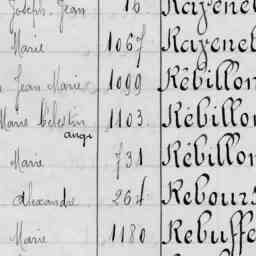 Joseph Jean 16 Razenet
Marie 1067 Razenet
Jean Marie 1099 Rébillon
Marie Célestin 1103 Rébillon
ange
Marie 731 Rébillon
Alexandre 264 Rebours
Marie 1180 Rebuffe